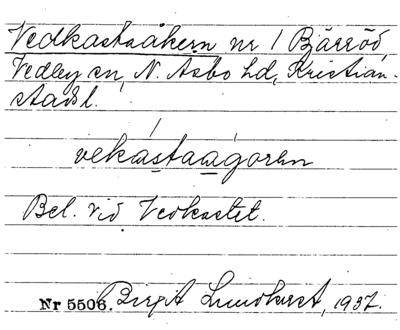 Vedkastsåkern nr 1 Bjärröd,
Vedby sn, N. Åsbo hd, Kristian-
stads l.
vekástaagoren
Bel. vid Vedkastet.
Nr 5506. Birgit Lundkvist, 1937.